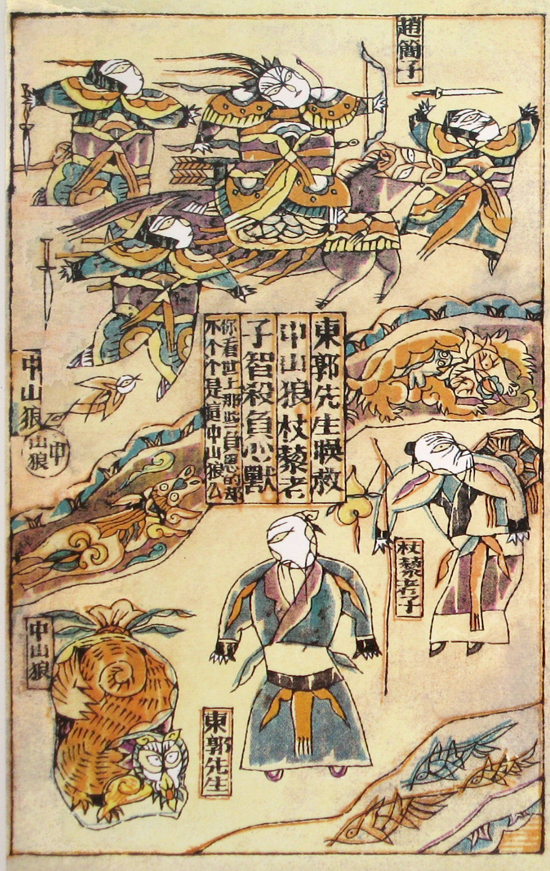 趙簡子
東郭先生悞救
中山狼杖藜老
子智殺負心獸
你看世上那些負恩的却
不个个是中山狼么
中山狼
中山狼
杖藜老子
中山狼
東郭先生